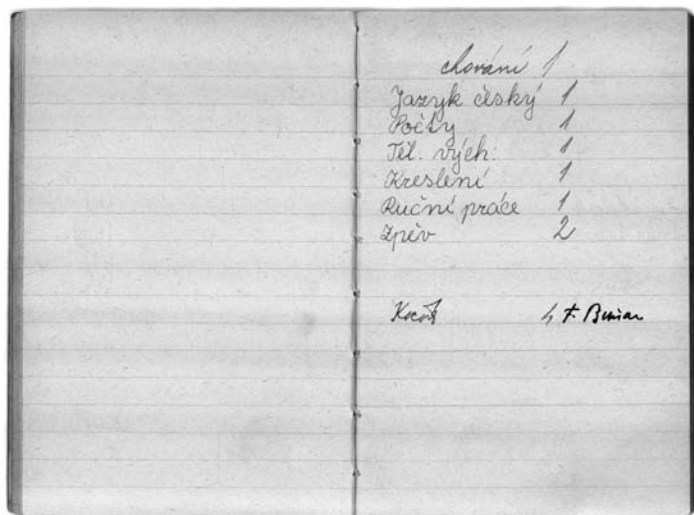 chování 1
Jazyk český 1
Počty 1
Těl. vých. 1
Kreslení 1
Ruční práce 1
Zpěv 2
F.